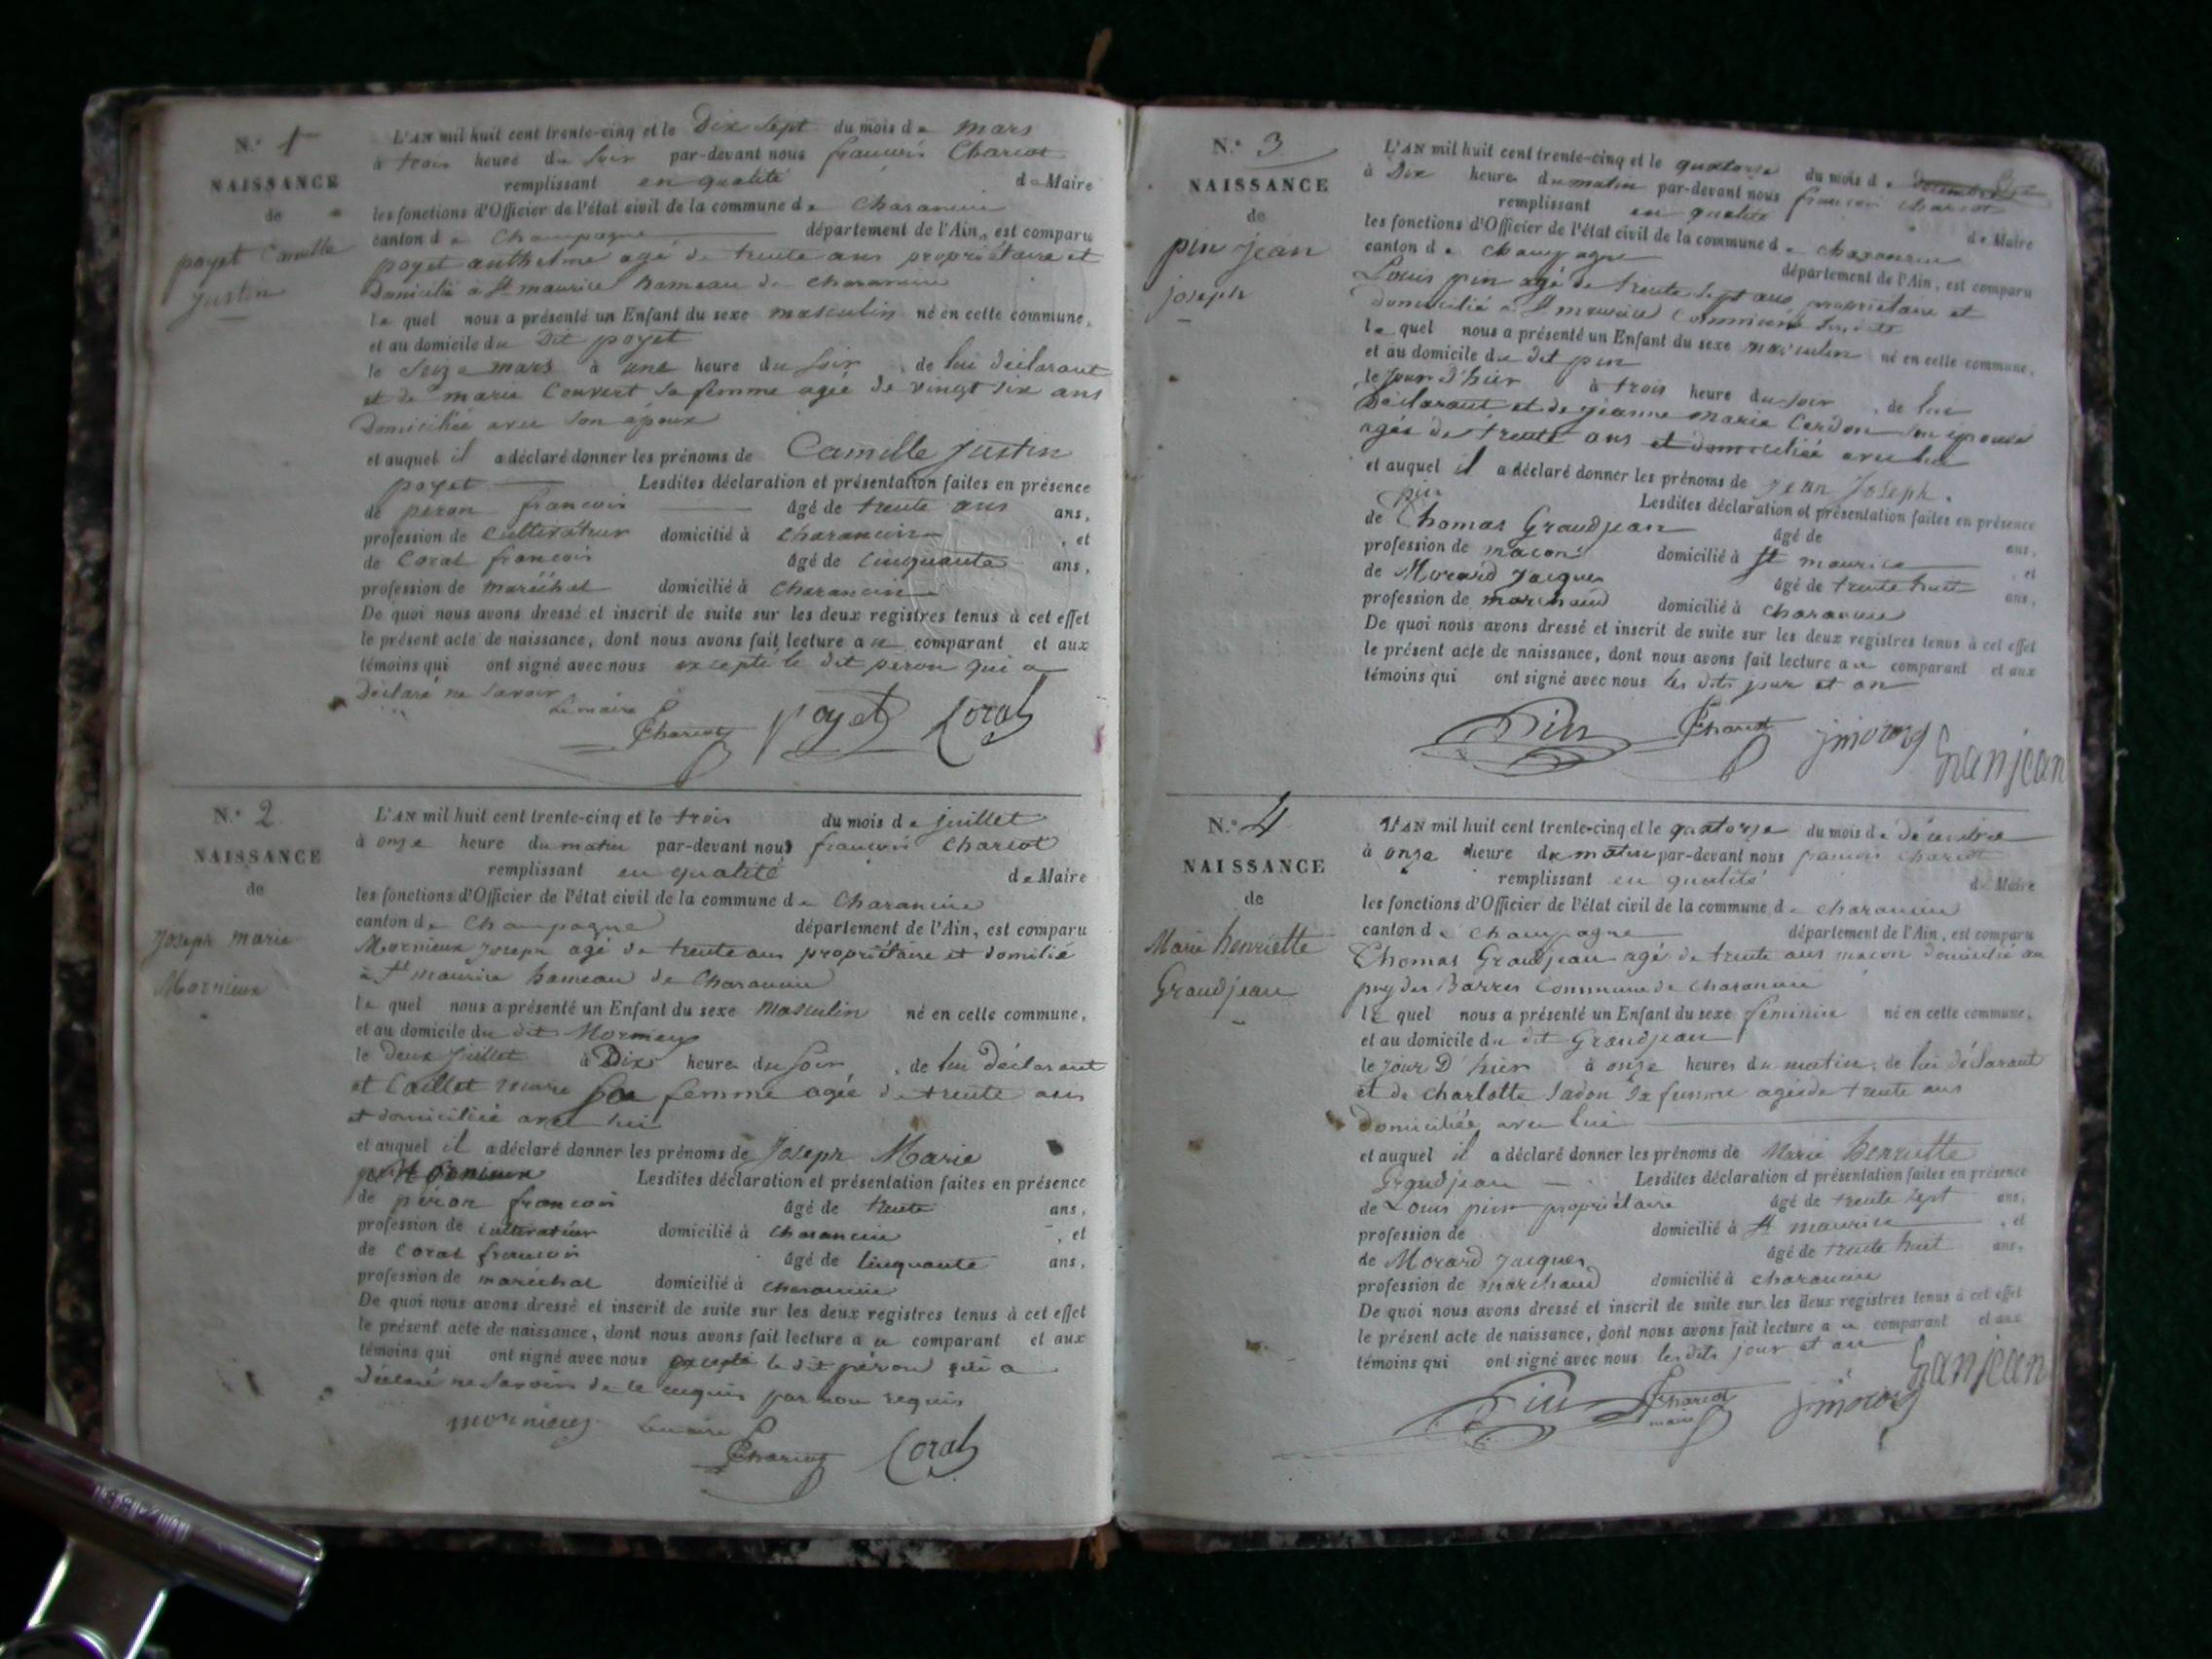 N.º 1
NAISSANCE
de
poyet Camille
Justin
L'AN mil huit cent trente-cinq et le Dix Sept du mois de mars
à trois heure du Soir par-devant nous francois Chariot
remplissant en qualité de Maire
les fonctions d'Officier de l'état civil de la commune de Charancin
canton de Champagne département de l'Ain, est comparu
poyet anthelme agé de trente ans propriétaire et
Domicilié a St maurice hameau de charancin
le quel nous a présenté un Enfant du sexe masculin né en cette commune,
et au domicile du Dit poyet
le Seize mars à une heure du Soir, de lui déclarant
et de marie Couvert Sa femme agée de vingt six ans
Domiciliée avec Son époux
et auquel il a déclaré donner les prénoms de Camille Justin
poyet Lesdites déclaration et présentation faites en présence
de peron francois âgé de trente ans ans,
profession de cultivateur domicilié à Charancin, et
de Coral francois âgé de Cinquante ans,
profession de maréchal domicilié à Charancin
De quoi nous avons dressé et inscrit de suite sur les deux registres tenus à cet effet
le présent acte de naissance, dont nous avons fait lecture au comparant et aux
témoins qui ont signé avec nous excepté le dit peron qui a
Déclaré ne Savoir
Le maire
Chariot poyet Coral
N.º 2
NAISSANCE
de
Joseph marie
Mornieux
L'AN mil huit cent trente-cinq et le trois du mois de juillet
à onze heure du matin par-devant nous francois Chariot
remplissant en qualité de Maire
les fonctions d'Officier de l'état civil de la commune de Charancin
canton de Champagne département de l'Ain, est comparu
Mornieux Joseph agé de trente ans propriétaire et domilié
à St maurice hameau de Charancin
le quel nous a présenté un Enfant du sexe Masculin né en cette commune,
et au domicile du dit Mornieux
le Deux Juillet à Dix heure du Soir, de lui déclarant
et Caillet marie Sa femme agée de trente ans
et domiciliée avec lui
et auquel il a déclaré donner les prénoms de Joseph Marie
Mornieux Lesdites déclaration et présentation faites en présence
de péron francois âgé de trente ans,
profession de cultivateur domicilié à Charancin, et
de Coral francois âgé de Cinquante ans,
profession de maréchal domicilié à Charancin
De quoi nous avons dressé et inscrit de suite sur les deux registres tenus à cet effet
le présent acte de naissance, dont nous avons fait lecture au comparant et aux
témoins qui ont signé avec nous excepté le dit péron qui a
déclaré ne Savoir de le par nou requis
mornieux Le maire
Chariot Coral
N.º 3
NAISSANCE
de
pin jean
joseph
L'AN mil huit cent trente-cinq et le quatorze du mois de décembre
à Dix heure du matin par-devant nous francois Chariot
remplissant en qualité de Maire
les fonctions d'Officier de l'état civil de la commune de charancin
canton de Champagne département de l'Ain, est comparu
Louis pin agé de trente Sept ans propriétaire et
Domicilié a St maurice
le quel nous a présenté un Enfant du sexe masculin né en cette commune,
et au domicile du dit pin
le Jour d'hier à trois heure du Soir, de lui
Déclarant et de jeanne Marie Cerdon Son épouse
agée de trente ans et domiciliée avec lui
et auquel il a déclaré donner les prénoms de Jean Joseph.
pin Lesdites déclaration et présentation faites en présence
de Thomas Grandjean âgé de ans,
profession de macon domicilié à St maurice, et
de Morard Jacques âgé de trente huit ans,
profession de marchand domicilié à charancin
De quoi nous avons dressé et inscrit de suite sur les deux registres tenus à cet effet
le présent acte de naissance, dont nous avons fait lecture au comparant et aux
témoins qui ont signé avec nous les dits jour et an
Pin Chariot jmorard Granjean
N.º 4
NAISSANCE
de
Marie henriette
Grandjean
L'AN mil huit cent trente-cinq et le quatorze du mois de décembre
à onze heure du matin par-devant nous francois chariot
remplissant en qualité de Maire
les fonctions d'Officier de l'état civil de la commune de charancin
canton de Champagne département de l'Ain, est comparu
Thomas Grandjean agé de trente ans macon domicilié au
Barres Commune de Charancin
le quel nous a présenté un Enfant du sexe féminin né en cette commune,
et au domicile du dit Grandjean
le Jour D'hier à onze heures du matin, de lui déclarant
et de charlotte Sa femme agée de trente ans
Domiciliée avec lui
et auquel il a déclaré donner les prénoms de Marie henriette
Grandjean Lesdites déclaration et présentation faites en présence
de Louis pin propriétaire âgé de trente sept ans,
profession de domicilié à St maurice, et
de Morard Jacques âgé de trente huit ans,
profession de marchand domicilié à charancin
De quoi nous avons dressé et inscrit de suite sur les deux registres tenus à cet effet
le présent acte de naissance, dont nous avons fait lecture au comparant et aux
témoins qui ont signé avec nous les dits jour et an
Pin Chariot jmorard Granjean
maire